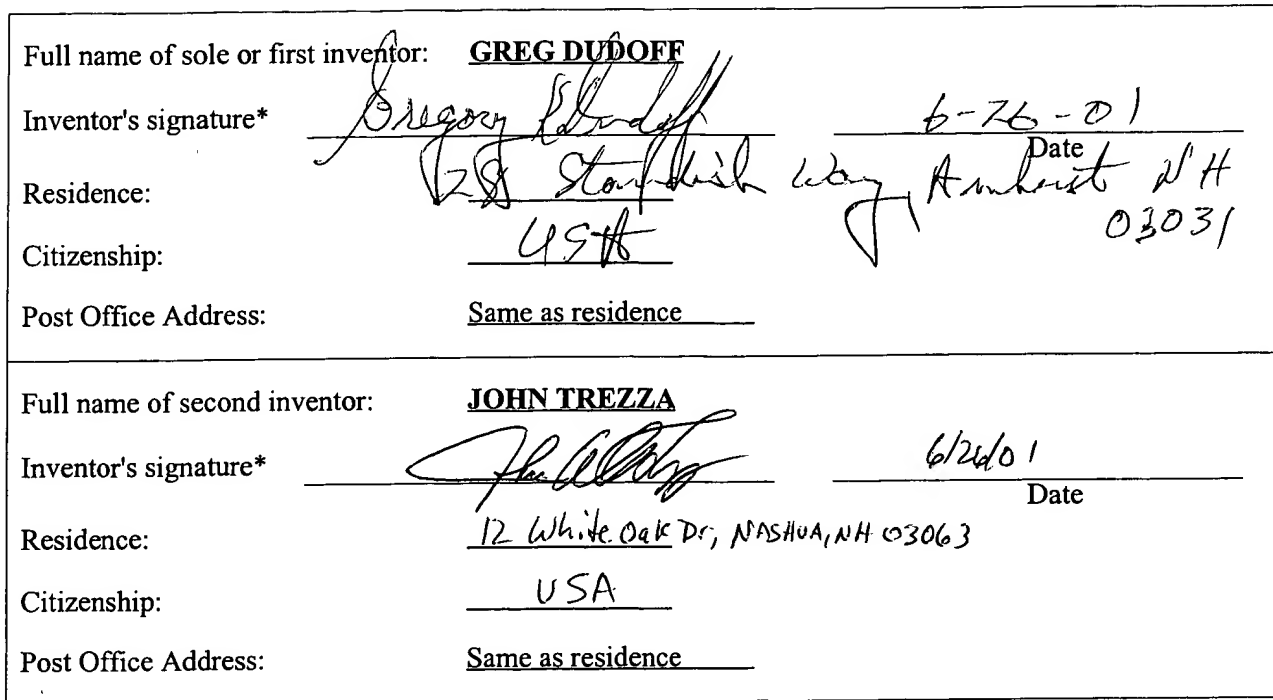 Full name of sole or first inventor: GREG DUDOFF
Inventor's signature* Gregory Dudoff 6-26-01
Date
Residence: Standish Way, Amherst NH
03031
Citizenship: USA
Post Office Address: Same as residence
Full name of second inventor: JOHN TREZZA
Inventor's signature* 6/26/01
Date
Residence: 12 White Oak Dr, NASHUA, NH 03063
Citizenship: USA
Post Office Address: Same as residence